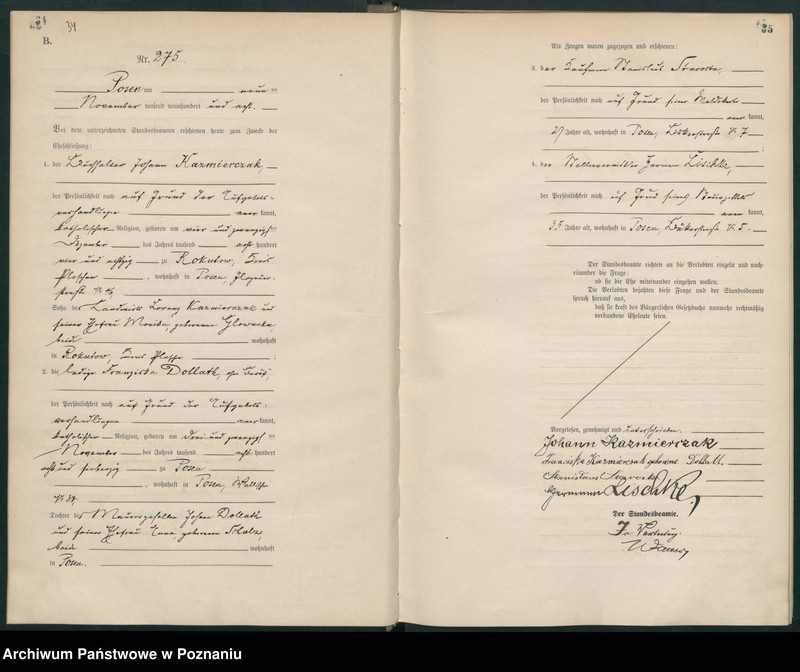 34
B.
Nr. 275
Posen am neun ten
November tausend neunhundert und acht.
Vor dem unterzeichneten Standesbeamten erschienen heute zum Zwecke der
Eheschließung:
1. der Buchhalter Johann Kazmierczak,
der Persönlichkeit nach auf Grund der Aufgebots-
verhandlungen anerkannt,
katholischer Religion, geboren am vier und zwanzigsten
Dezember des Jahres tausend acht hundert
vier und achtzig zu Rokutow, Kreis
Pleschen, wohnhaft in Posen,
Sohn des Landwirts Lorenz Kazmierczak und
seiner Ehefrau Monika, geborenen Glowacka,
beide wohnhaft
in Rokutow, Kreis Pleschen;
2. die ledige Franziska Dollatt, ohne Beruf,
der Persönlichkeit nach auf Grund der Aufgebots-
verhandlungen anerkannt,
katholischer Religion, geboren am drei und zwanzigsten
November des Jahres tausend acht hundert
acht und siebenzig zu Posen
, wohnhaft in Posen,
Nr. 34
Tochter des Maurergesellen Johann Dollatt
und seiner Ehefrau geborenen
beide wohnhaft
in Posen.
35
Als Zeugen waren zugezogen und erschienen:
3. der Kaufmann Stanislaus
der Persönlichkeit nach auf Grund seiner
anerkannt,
27 Jahre alt, wohnhaft in Posen, Nr. 7
4. der Hermann Lischke,
der Persönlichkeit nach auf Grund seines
anerkannt,
35 Jahre alt, wohnhaft in Posen, Nr. 5.
Der Standesbeamte richtete an die Verlobten einzeln und nach-
einander die Frage:
ob sie die Ehe miteinander eingehen wollen.
Die Verlobten bejahten diese Frage und der Standesbeamte
sprach hierauf aus,
daß sie kraft des Bürgerlichen Gesetzbuchs nunmehr rechtmäßig
verbundene Eheleute seien.
Vorgelesen, genehmigt und unterschrieben.
Johann Kazmierczak
Franziska Kazmierczak geborene Dollatt.
Stanislaus
Hermann Lischke,
Der Standesbeamte.
In Vertretung.
Archiwum Państwowe w Poznaniu